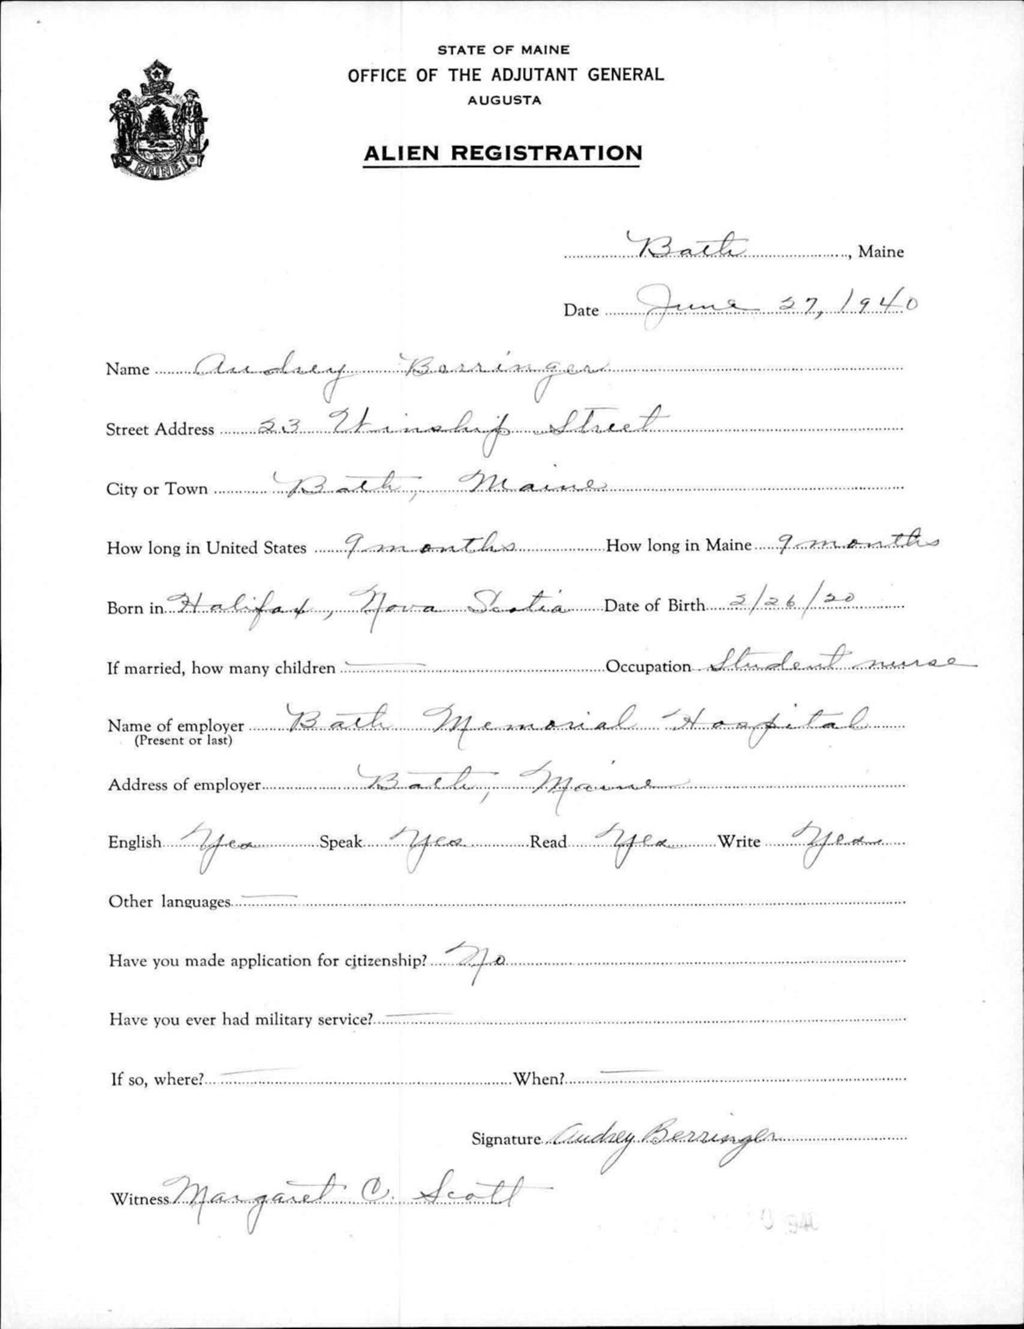 STATE OF MAINE
OFFICE OF THE ADJUTANT GENERAL
AUGUSTA
ALIEN REGISTRATION
MAINE
Bath, Maine
Date June 27, 1940
Name Audrey Berringer
Street Address 23 Winship Street
City or Town Bath, Maine
How long in United States 9 months How long in Maine 9 months
Born in Halifax, Nova Scotia Date of Birth 2/26/20
If married, how many children — Occupation Student nurse
Name of employer Bath Memorial Hospital
(Present or last)
Address of employer Bath, Maine
English Yes Speak Yes Read Yes Write Yes
Other languages —
Have you made application for citizenship? No
Have you ever had military service? —
If so, where? — When? —
Signature Audrey Berringer
Witness Margaret C. Scott